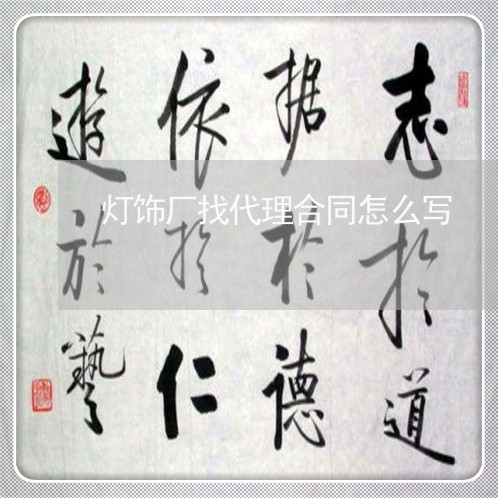 灯饰厂找代理合同怎么写
志於道
据於德
依於仁
遊於藝